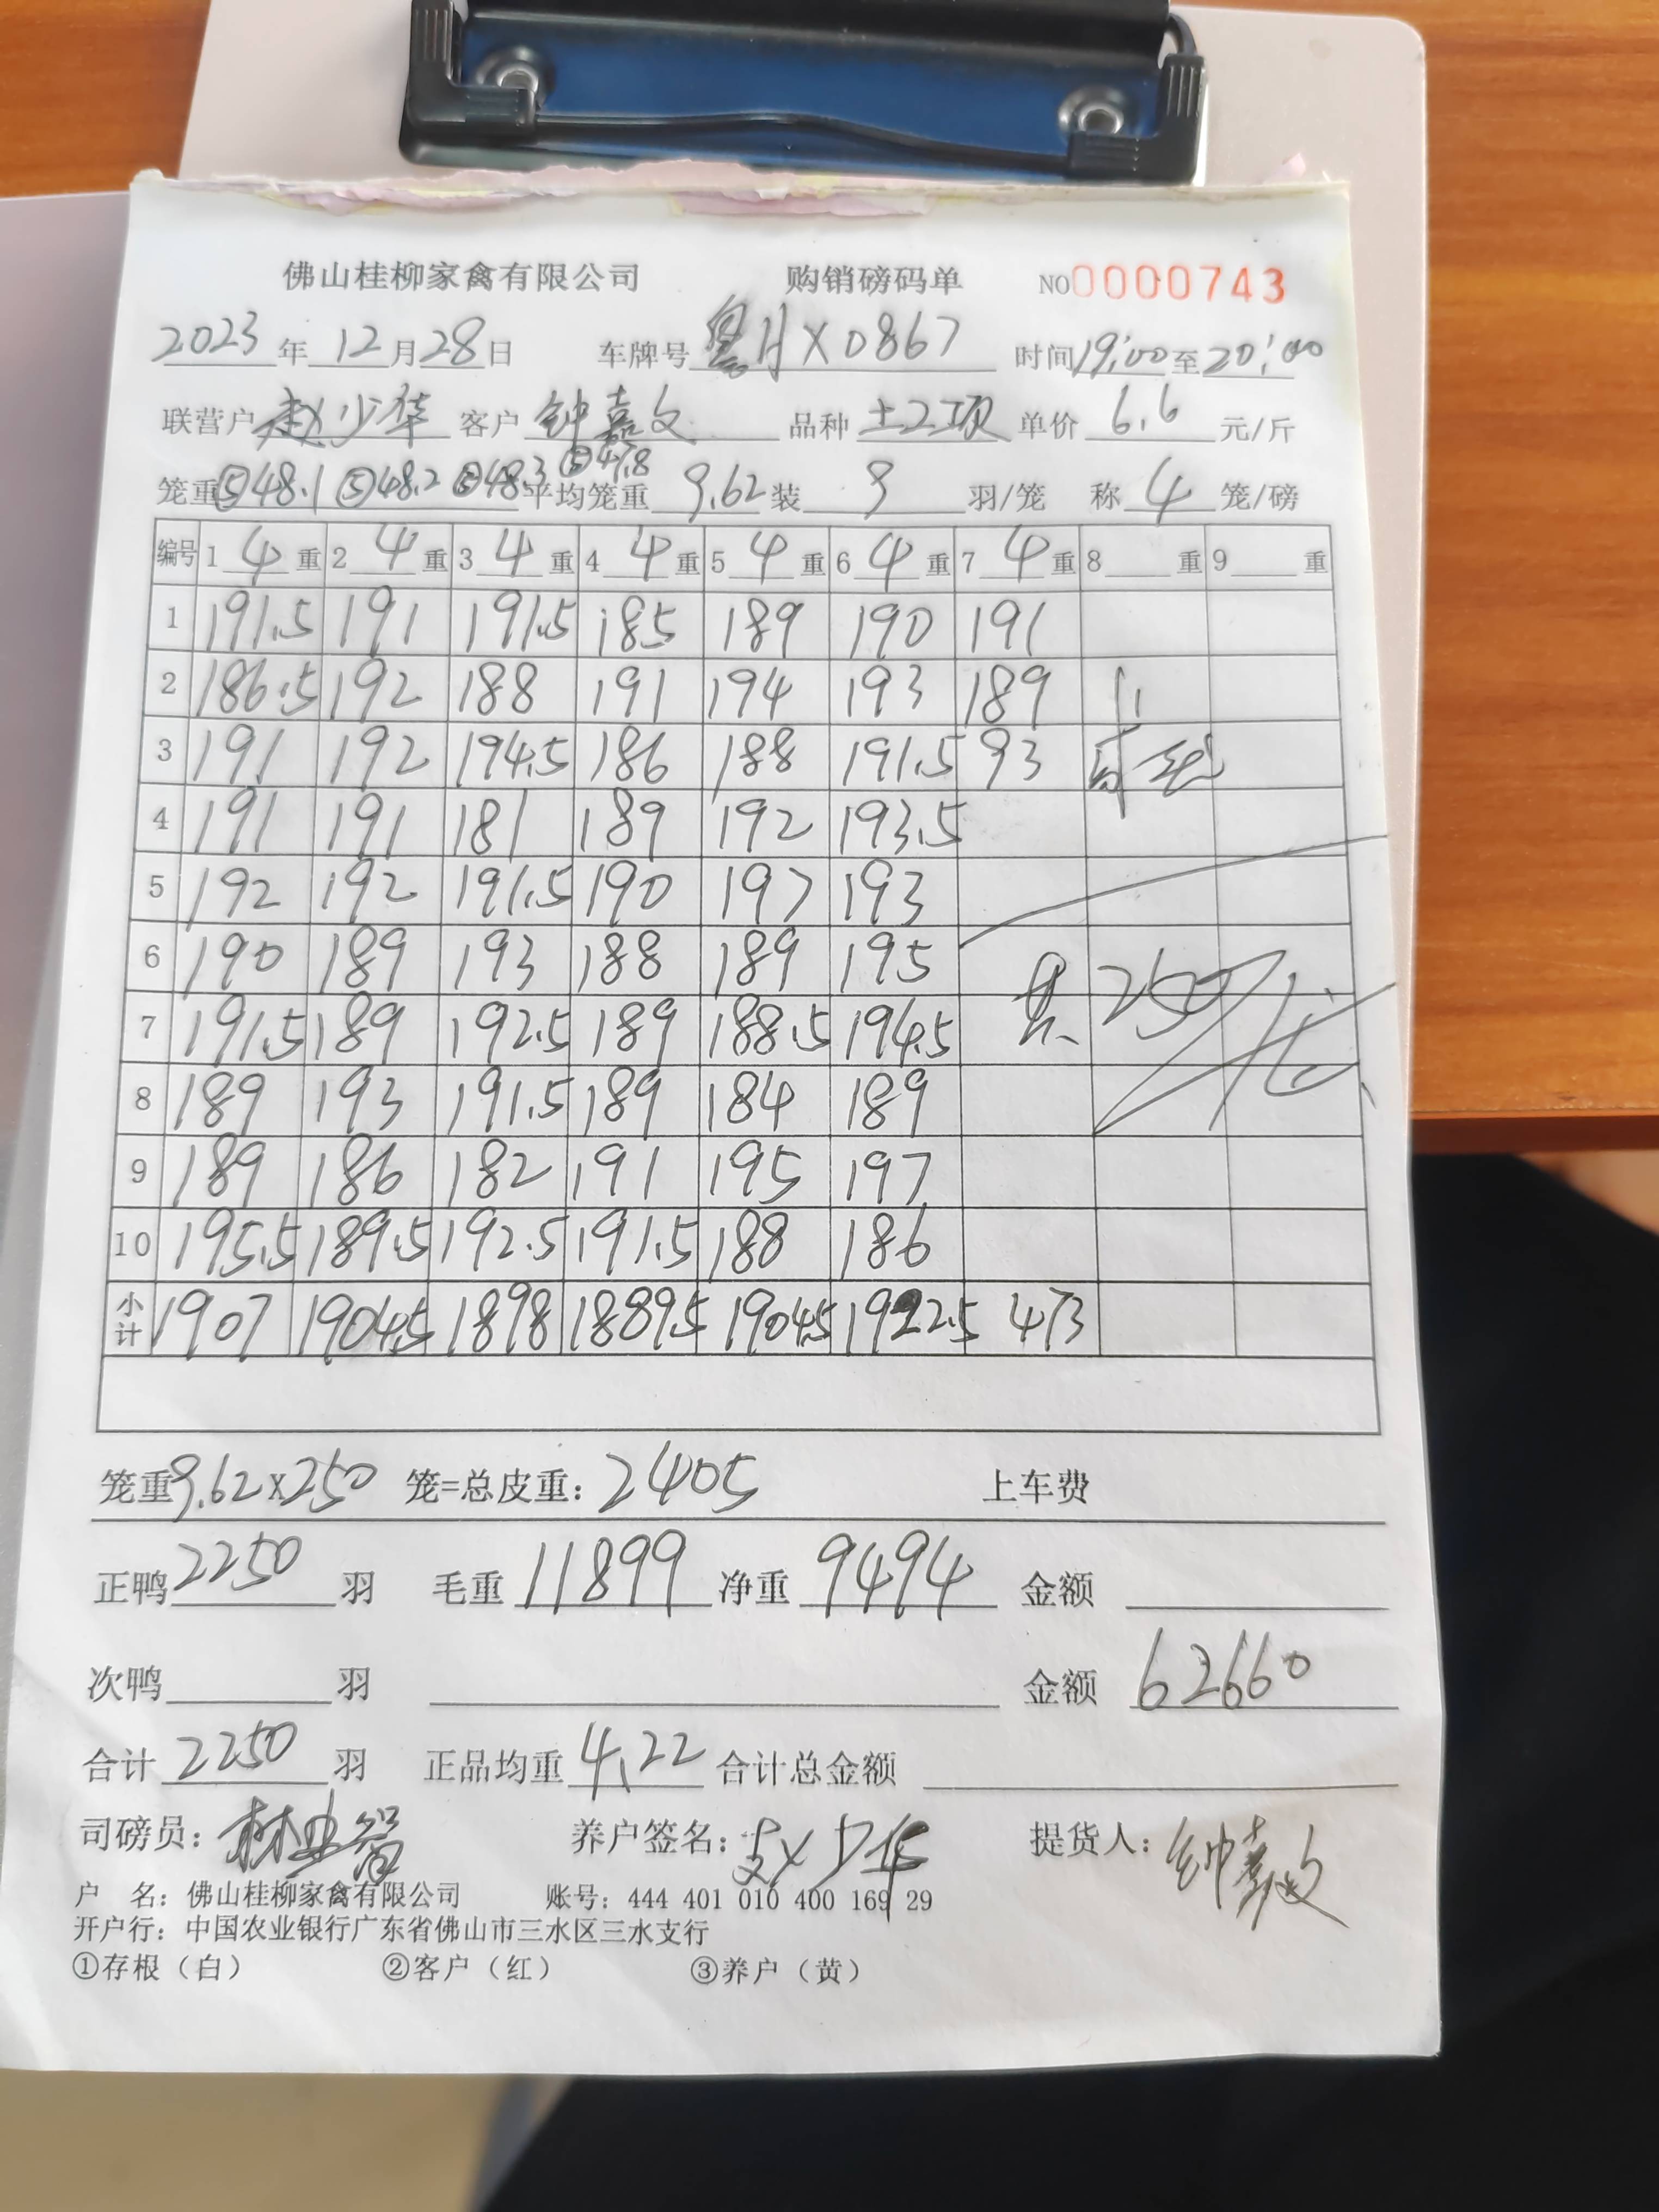 佛山桂柳家禽有限公司 购销磅码单 NO0000743
2023年12月28日 车牌号 粤HX0867 时间19:00至20:00
联营户 赵少华 客户 钟嘉文 品种 土2项 单价 6.6 元/斤
笼重⑤48.1 ⑤48.2 ⑤48.3 ⑤47.8 平均笼重 9.62 装 9 羽/笼 称 4 笼/磅
编号 1 4 重 2 4 重 3 4 重 4 4 重 5 4 重 6 4 重 7 4 重 8 重 9 重
1 191.5 191 191.5 185 189 190 191
2 186.5 192 188 191 194 193 189
3 191 192 194.5 186 188 191.5 93
4 191 191 181 189 192 193.5
5 192 192 191.5 190 197 193
6 190 189 193 188 189 195
7 191.5 189 192.5 189 188.5 194.5 共250笼
8 189 193 191.5 189 184 189
9 189 186 182 191 195 197
10 195.5 189.5 192.5 191.5 188 186
小计 1907 1904.5 1898 1889.5 1904.5 1922.5 473
笼重9.62×250 笼=总皮重：2405 上车费
正鸭 2250 羽 毛重 11899 净重 9494 金额
次鸭 羽 金额 62660
合计 2250 羽 正品均重 4.22 合计总金额
司磅员： 养户签名： 提货人：钟嘉文
户 名：佛山桂柳家禽有限公司 账号：444 401 010 400 169 29
开户行：中国农业银行广东省佛山市三水区三水支行
①存根（白） ②客户（红） ③养户（黄）